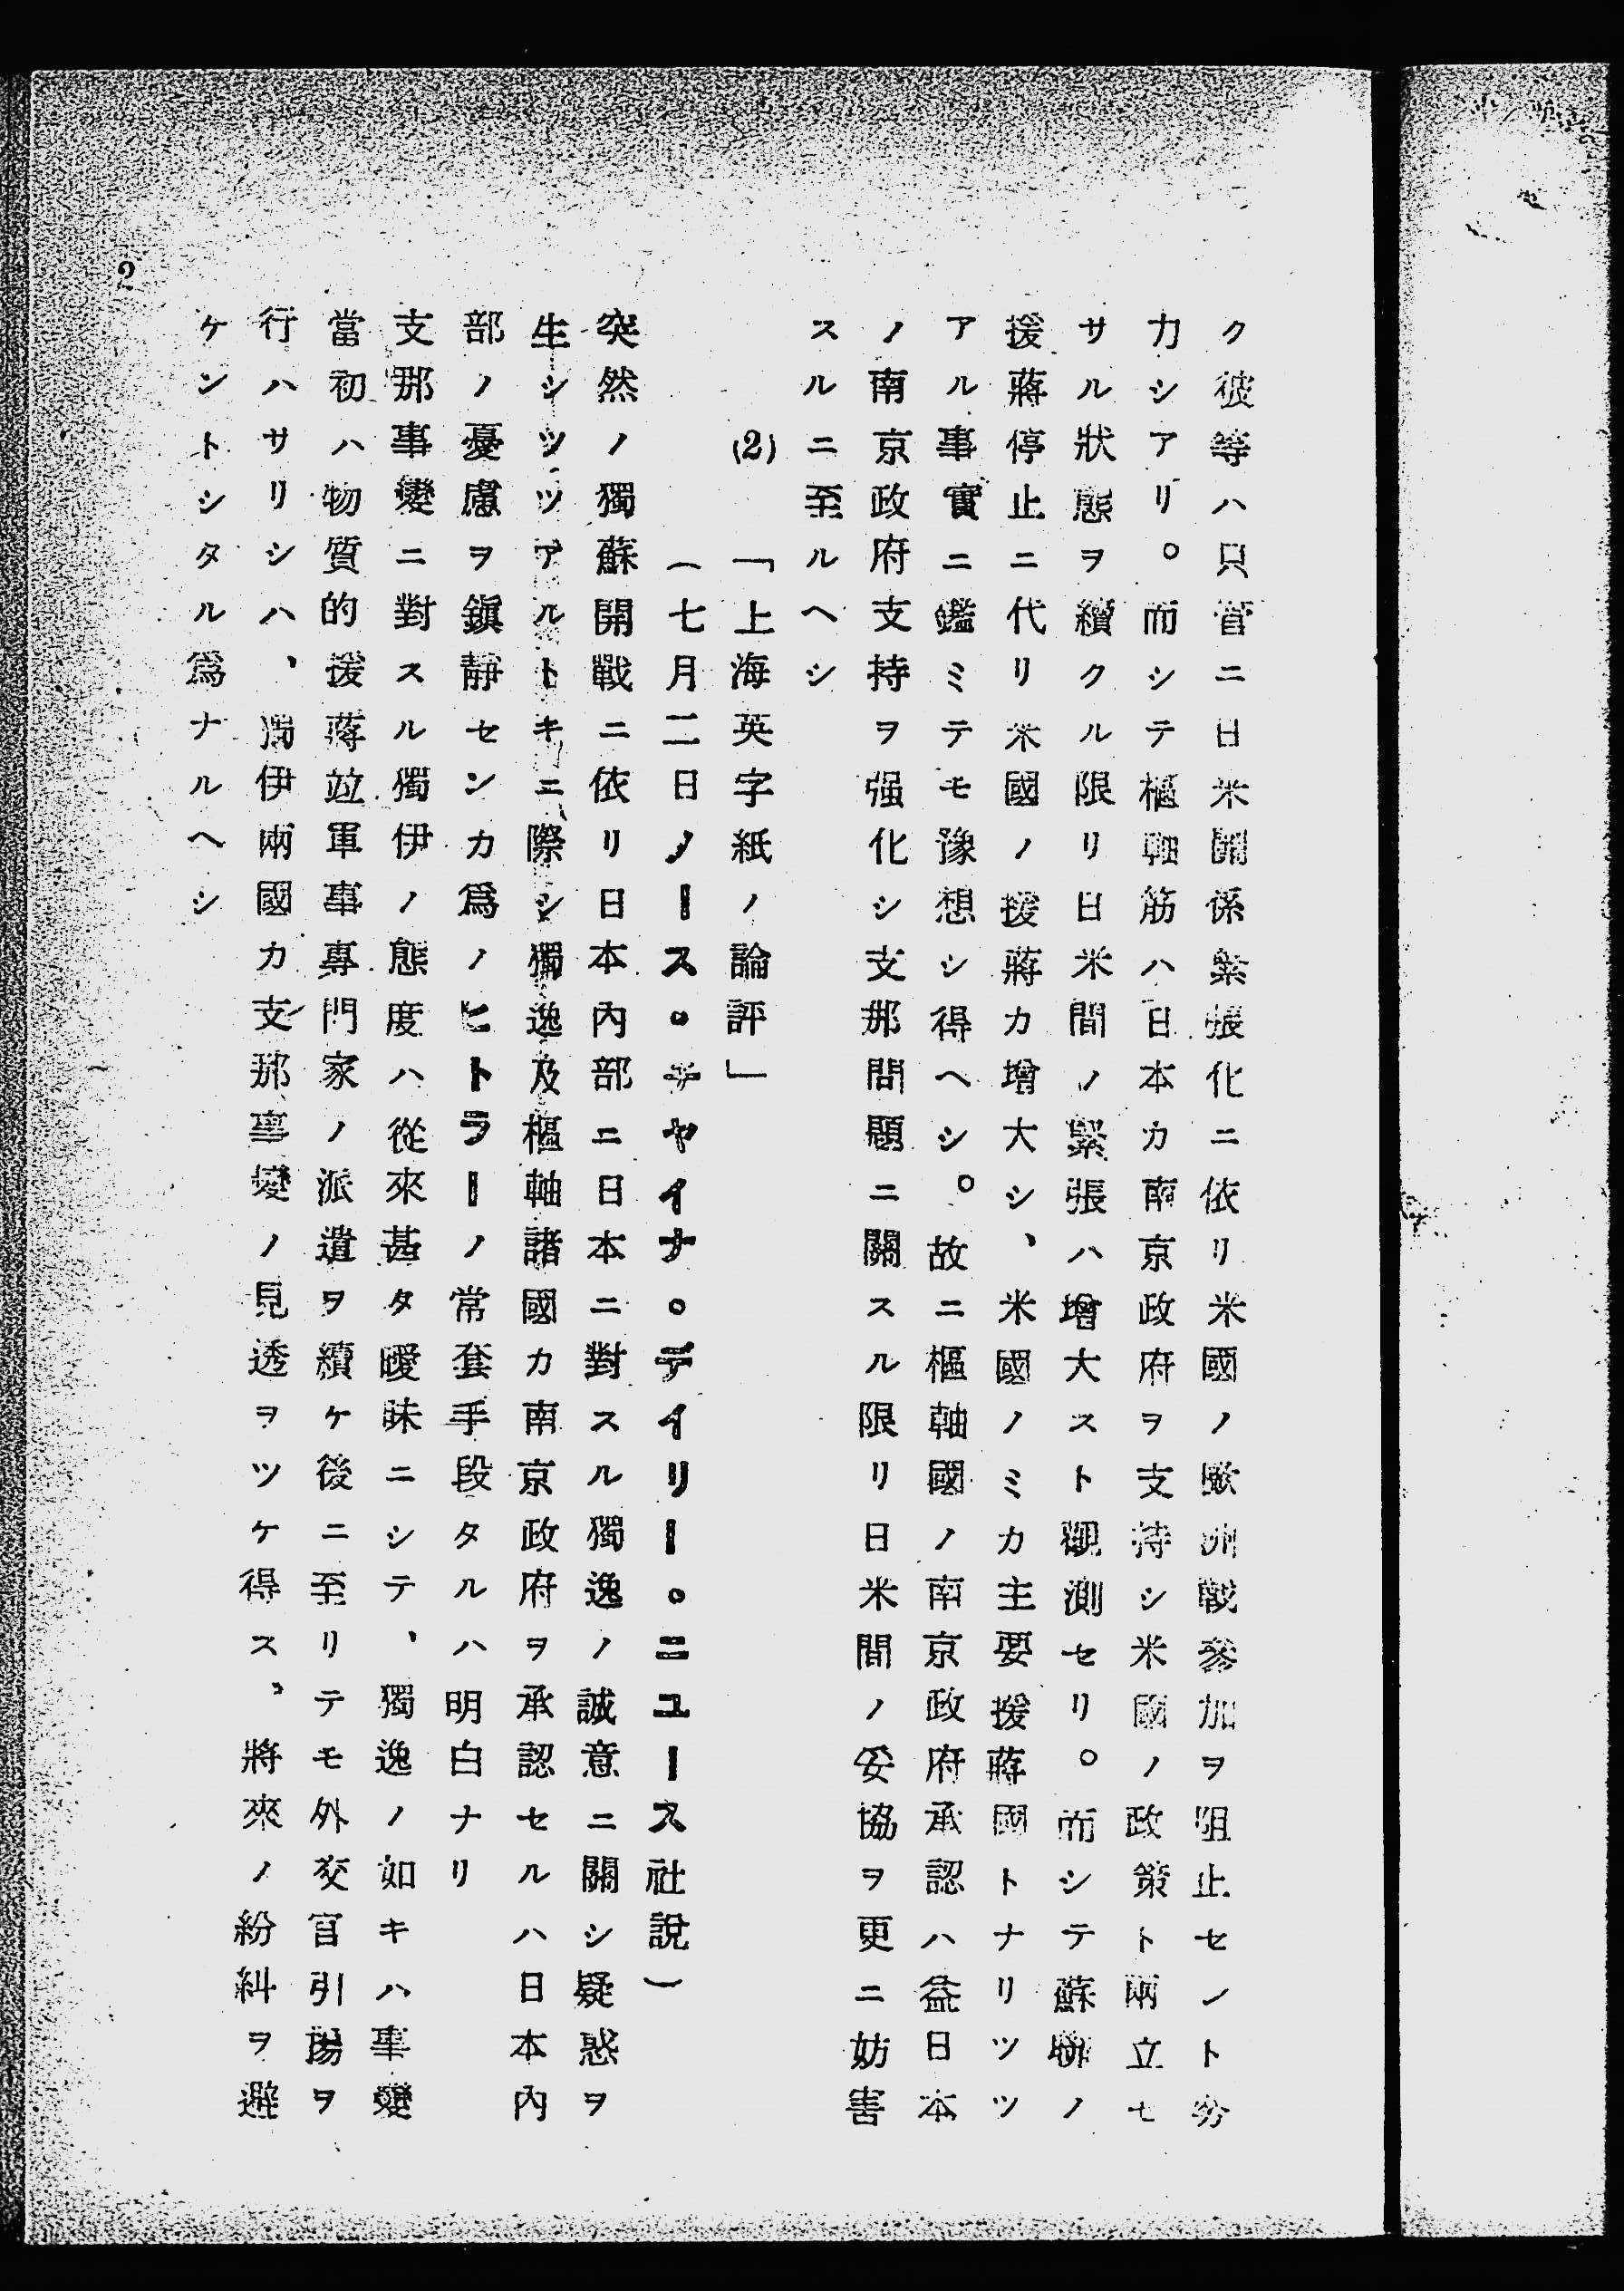 ク彼等ハ只管ニ日米關係緊張化ニ依リ米國ノ歐洲戰參加ヲ阻止セント努
力シアリ。而シテ樞軸筋ハ日本カ南京政府ヲ支持シ米國ノ政策ト兩立セ
サル狀態ヲ續クル限リ日米間ノ緊張ハ增大スト觀測セリ。而シテ蘇聯ノ
援蔣停止ニ代リ米國ノ援蔣カ增大シ、米國ノミカ主要援蔣國トナリツツ
アル事實ニ鑑ミテモ豫想シ得ヘシ。故ニ樞軸國ノ南京政府承認ハ益日本
ノ南京政府支持ヲ强化シ支那問題ニ關スル限リ日米間ノ妥協ヲ更ニ妨害
スルニ至ルヘシ
(2) 「上海英字紙ノ論評」
(七月二日ノース。チヤイナ。デイリー。ニユース社說)
突然ノ獨蘇開戰ニ依リ日本內部ニ日本ニ對スル獨逸ノ誠意ニ關シ疑惑ヲ
生シツツアルトキニ際シ獨逸及樞軸諸國カ南京政府ヲ承認セルハ日本內
部ノ憂慮ヲ鎭靜センカ爲ノヒトラーノ常套手段タルハ明白ナリ
支那事變ニ對スル獨伊ノ態度ハ從來甚タ曖昧ニシテ、獨逸ノ如キハ事變
當初ハ物質的援蔣竝軍事專門家ノ派遣ヲ續ケ後ニ至リテモ外交官引揚ヲ
行ハサリシハ、獨伊兩國カ支那事變ノ見透ヲツケ得ス、將來ノ紛糾ヲ避
ケントシタル爲ナルヘシ
2